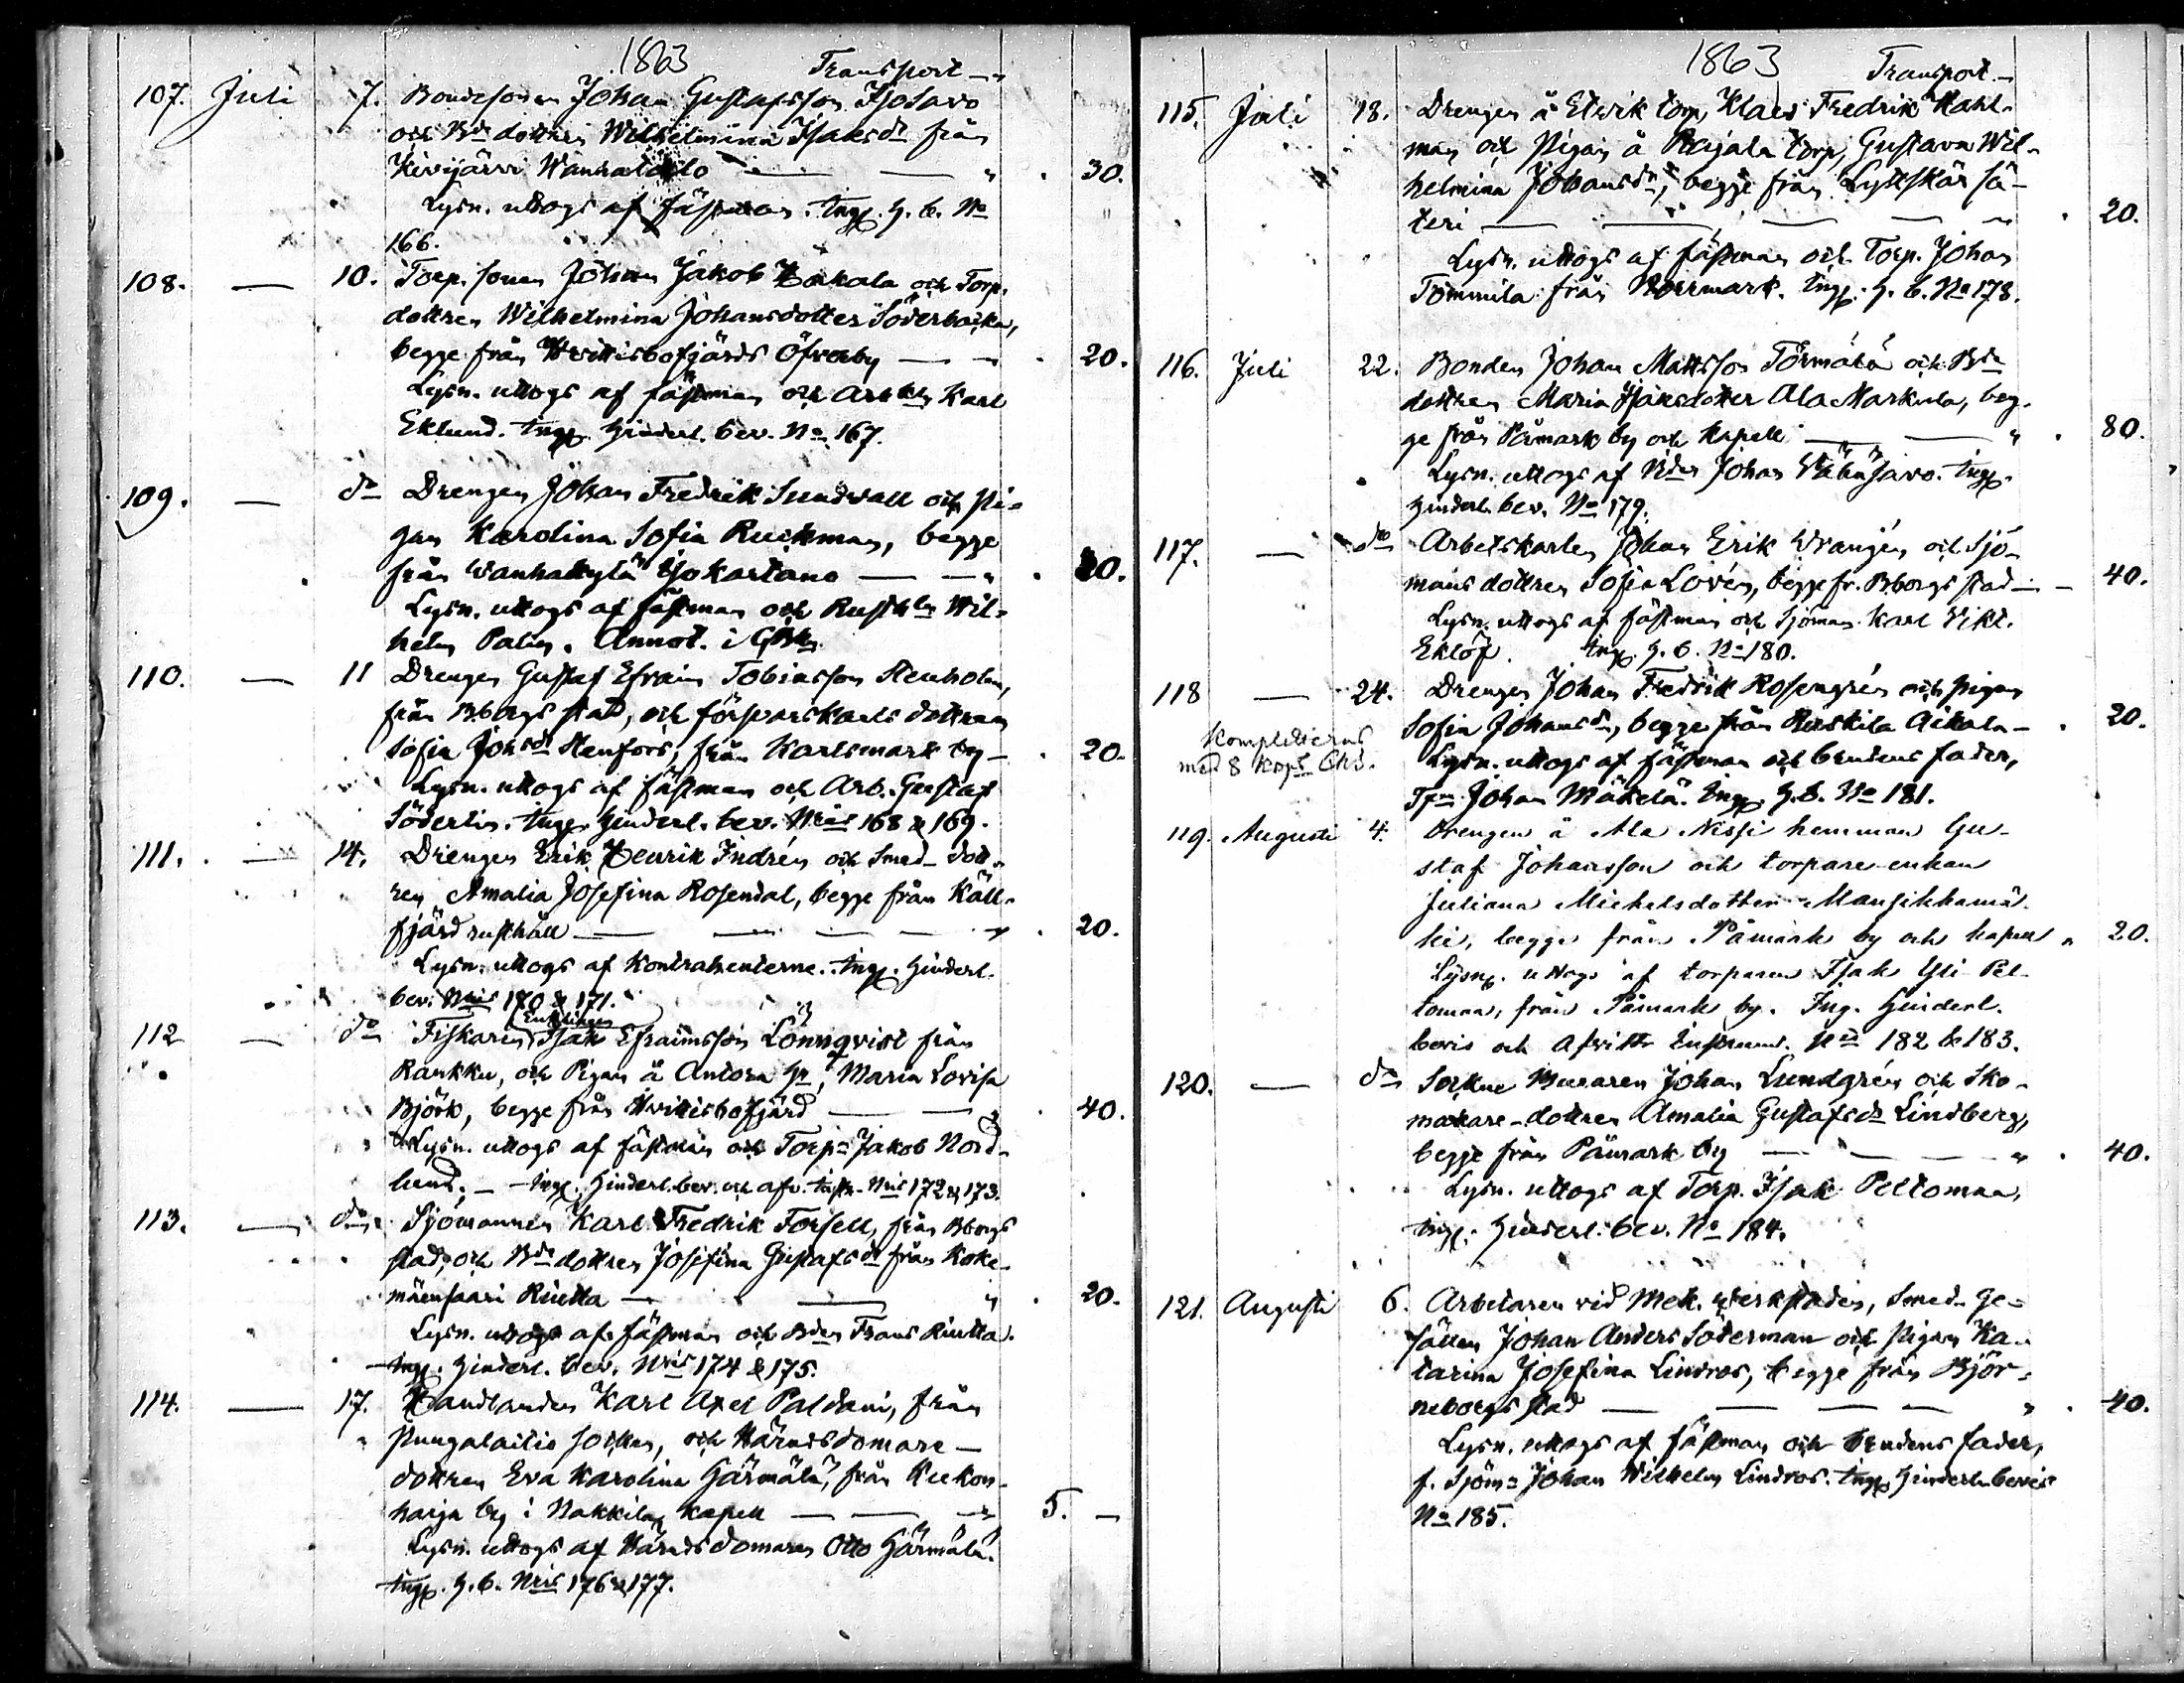 1863 Transport
107. Juli 7. Bondesonen Johan Gustafsson Isosavo
och Bde dottren Wilhelmina Isaksdr från
Kivijärvi Wanhatalo — — " . 30.
Lysn. uttogs af fästman. Ingg. H. b. No
166.
108. — 10. Torp. sonen Johan Jakob Hakala och Torp.
dottren Wilhelmina Johansdotter Söderbacka,
begge från Hvittisbofjärds Öfverby — — . 20.
Lysn. uttogs af fästman och Arbkln Karl
Eklund. Ingg. Hinderl. bev. No 167.
109. — do Drengen Johan Fredrik Sundvall och Pi-
gan Karolina Sofia Ruckman, begge
från Wanhakylä Isokartano — — " . 20.
Lysn. uttogs af fästman och Rusthln Wil-
helm Palin. Annot. i
110. — 11 Drengen Gustaf Efraim Tobiasson Stenholm,
från Bborgs stad, och försvarskarls dottren
Sofia Johsdr Stenfors, från Karlsmark by — . 20.
Lysn. uttogs af fästman och Arb. Gustaf
Söderlin. Ingg. Hinderl. bev. Nris 168 & 169.
111. — 14. Drengen Erik Henrik Indrén och Smed-dott-
ren Amalia Josefina Rosendal, begge från Käll-
fjärd rusthåll — — — — " . 20.
Lysn. uttogs af Kontrahenterne. Ingg. Hinderl.
bev. Nris 170 & 171.
112 — do Fiskaren (Enklingen) Isak Efraimsson Lönnqvist från
Rankku, och Pigan å Antora Hn, Maria Lovisa
Björk, begge från Hvittisbofjärd — — . 40.
Lysn. uttogs af fästman och Torp: Jakob Nord-
lund. — Ingg. Hinderl. bev. och afv. Nris 172 & 173.
113. — do Sjömannen Karl Fredrik Forsell, från Bborgs
stad, och Bde dottren Josefina Gustafsdr från Koke-
mäensaari Ruutta — — " . 20.
Lysn. uttogs af fästman och Bden Frans Ruutta.
Ingg. Hinderl. bev. Nris 174 & 175.
114. — 17. Handlanden Karl Axel Paldani, från
Pungalaitio socken, och Härads domare-
dottren Eva Karolina Härmälä, från Kukon-
harja by i Nakkila kapell — — " 5. —
Lysn. uttogs af Härads domaren Otto Härmälä.
Ingg. H. b. Nris 176 & 177.
1863 Transport —
115. Juli 18. Drengen å Elvik torp, Klaes Fredrik Kahl-
man och Pigan å Rajala torp, Gustava Wil-
helmina Johansdr, begge från Lyttskär sä-
teri — — — — — . 20.
Lysn. uttogs af fästman och Torp. Johan
Tommila från Norrmark. Ingg. H. b. No 178.
116. Juli 22. Bonden Johan Mattsson Törmälä och Bde
dottren Maria Isaksdotter Ala Markula, beg-
ge från Påmark by och Kapell — — " . 80.
Lysn. uttogs af Bden Johan Wähäsavo. Ingg.
Hinderl. bev. No 179.
117. — do Arbetskarlen Johan Erik Wrangén och Sjö-
mans dottren Sofia Lovén, begge fr. Bborgs stad — — 40.
Lysn. uttogs af fästman och Sjöman Karl Vikt.
Eklöf. Ingg. H. b. No 180.
118 — 24. Drengen Johan Fredrik Rosengrén och pigan
Sofia Johansdr, begge från Ruskila Aitala — . 20.
Kompletteras
med 8 kop.
Lysn. uttogs af fästman och brudens fader,
Johan Mäkelä. Ingg. H. b. No 181.
119. Augusti 4. Drengen å Ala Nissi hemman Gu-
staf Johansson och torpare enkan
Juliana Michelsdotter Mansikkamä-
ki, begge från Påmark by och kapell " 20.
Lysng. uttogs af torparen Isak Yli Pel-
tomaa, från Påmark by. Ing. Hinderl.
bevis och Afvittr Instrument. Nris 182 & 183.
120. — do Sockne Muraren Johan Lundgrén och Sko-
makare-dottren Amalia Gustafsdr Lindberg,
begge från Påmark by — — — " . 40.
Lysn. uttogs af Torp. Isak Peltomaa,
Ingg. Hinderl. bev. No 184.
121. Augusti 6. Arbetaren vid Mek. Verkstaden, Smed-Ge-
sällen Johan Anders Söderman och Pigan Ka-
tarina Josefina Lindros, begge från Björ-
neborgs stad — — — — " . 40.
Lysn. uttogs af fästman och brudens fader,
f. Sjöm: Johan Wilhelm Lindros. Ingg. Hinderl. bevis
No 185.